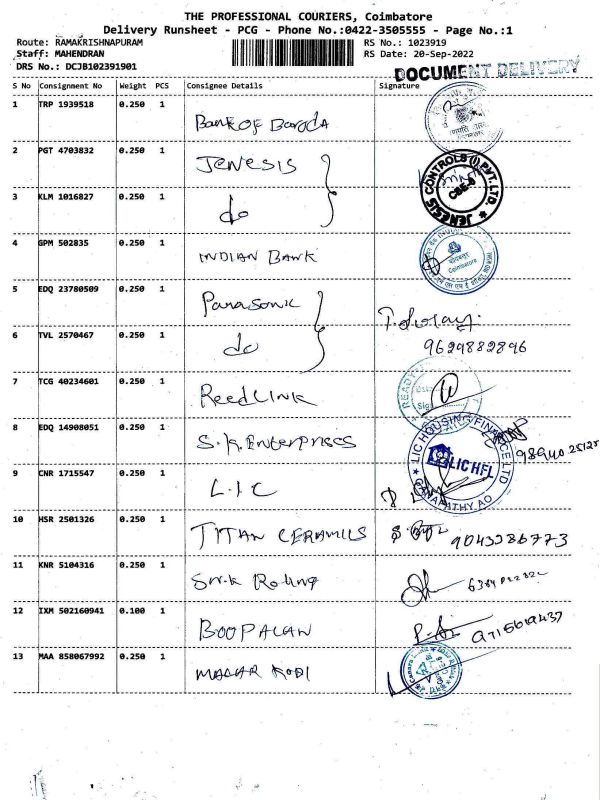 THE PROFESSIONAL COURIERS, Coimbatore
Delivery Runsheet - PCG - Phone No.:0422-3505555 - Page No.:1
Route: RAMAKRISHNAPURAM RS No.: 1023919
Staff: MAHENDRAN RS Date: 20-Sep-2022
DRS No.: DCJB102391901 DOCUMENT DELIVERY
S No Consignment No Weight PCS Consignee Details Signature
1 TRP 1939518 0.250 1 Bank of Baroda
2 PGT 4703832 0.250 1 JENESIS
JENESIS CONTROLS (I) PVT.LTD. CBE-6
3 KLM 1016827 0.250 1 do
4 GPM 502835 0.250 1 INDIAN BANK
Coimbatore
5 EDQ 23780509 0.250 1 Panasonic
6 TVL 2570467 0.250 1 do 9629882896
7 TCG 40234601 0.250 1 Reed Link
8 EDQ 14908051 0.250 1 S.K. Enterprises
LIC HOUSING FINANCE LTD LIC HFL GANAPATHY AO
9 CNR 1715547 0.250 1 L.I.C
10 HSR 2501326 0.250 1 TITAN CERAMICS
11 KNR 5104316 0.250 1
12 IXM 502160941 0.100 1 BOOPALAN
13 MAA 858067992 0.250 1 MALAR KODI